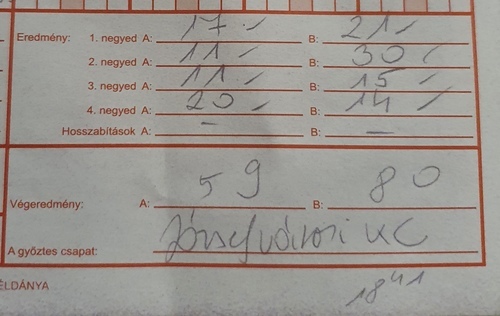 Eredmény: 1. negyed A: 17 B: 21
2. negyed A: 11 B: 30
3. negyed A: 11 B: 15
4. negyed A: 20 B: 14
Hosszabítások A: – B: –
Végeredmény: A: 59 B: 80
A győztes csapat: Józsefvárosi KC
ÉLDÁNYA
18 41